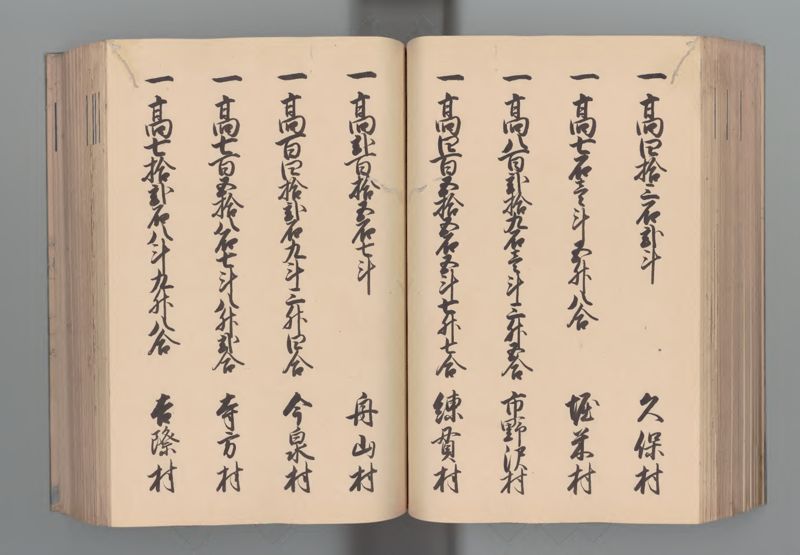 一 髙四拾三石弐斗 久保村
一 髙七石壱斗五升八合 堀米村
一 髙八百弐拾九石壱斗三升五合 市野沢村
一 髙四百五拾五石五斗七升七合 練貫村
一 髙弐百拾五石七斗 舟山村
一 髙百四拾弐石九斗三升四合 今泉村
一 髙七百五拾八石七斗八升弐合 寺方村
一 髙七拾弐石八斗九升八合 吉際村